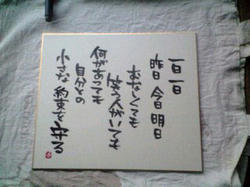 一日一日
昨日 今日 明日
おなじくても
笑う人がいても
何があっても
自分との
小さな約束を守る